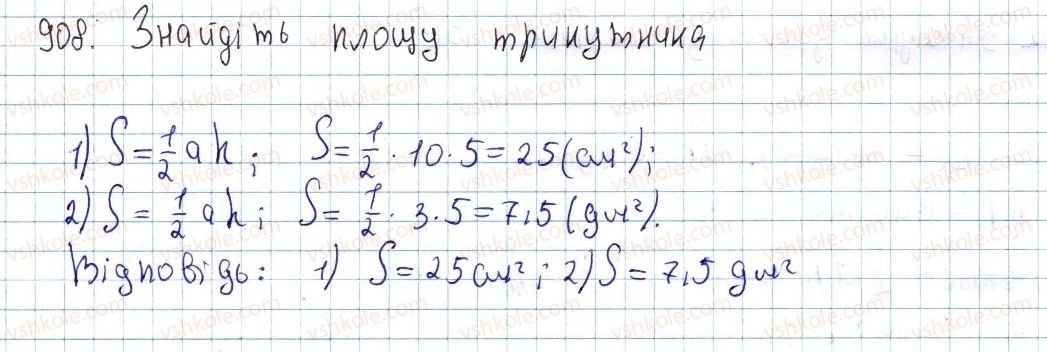 908. Знайдіть площу трикутника
1) S = 1/2 ah; S = 1/2 · 10 · 5 = 25 (см²);
2) S = 1/2 ah; S = 1/2 · 3 · 5 = 7,5 (дм²).
Відповідь: 1) S = 25 см²; 2) S = 7,5 дм²